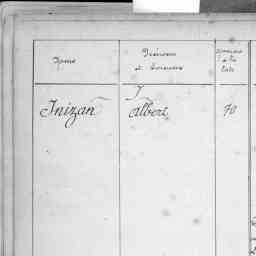 Noms
Prénoms
et Surnoms
Numéros
de la
liste
Inizan
Albert
70